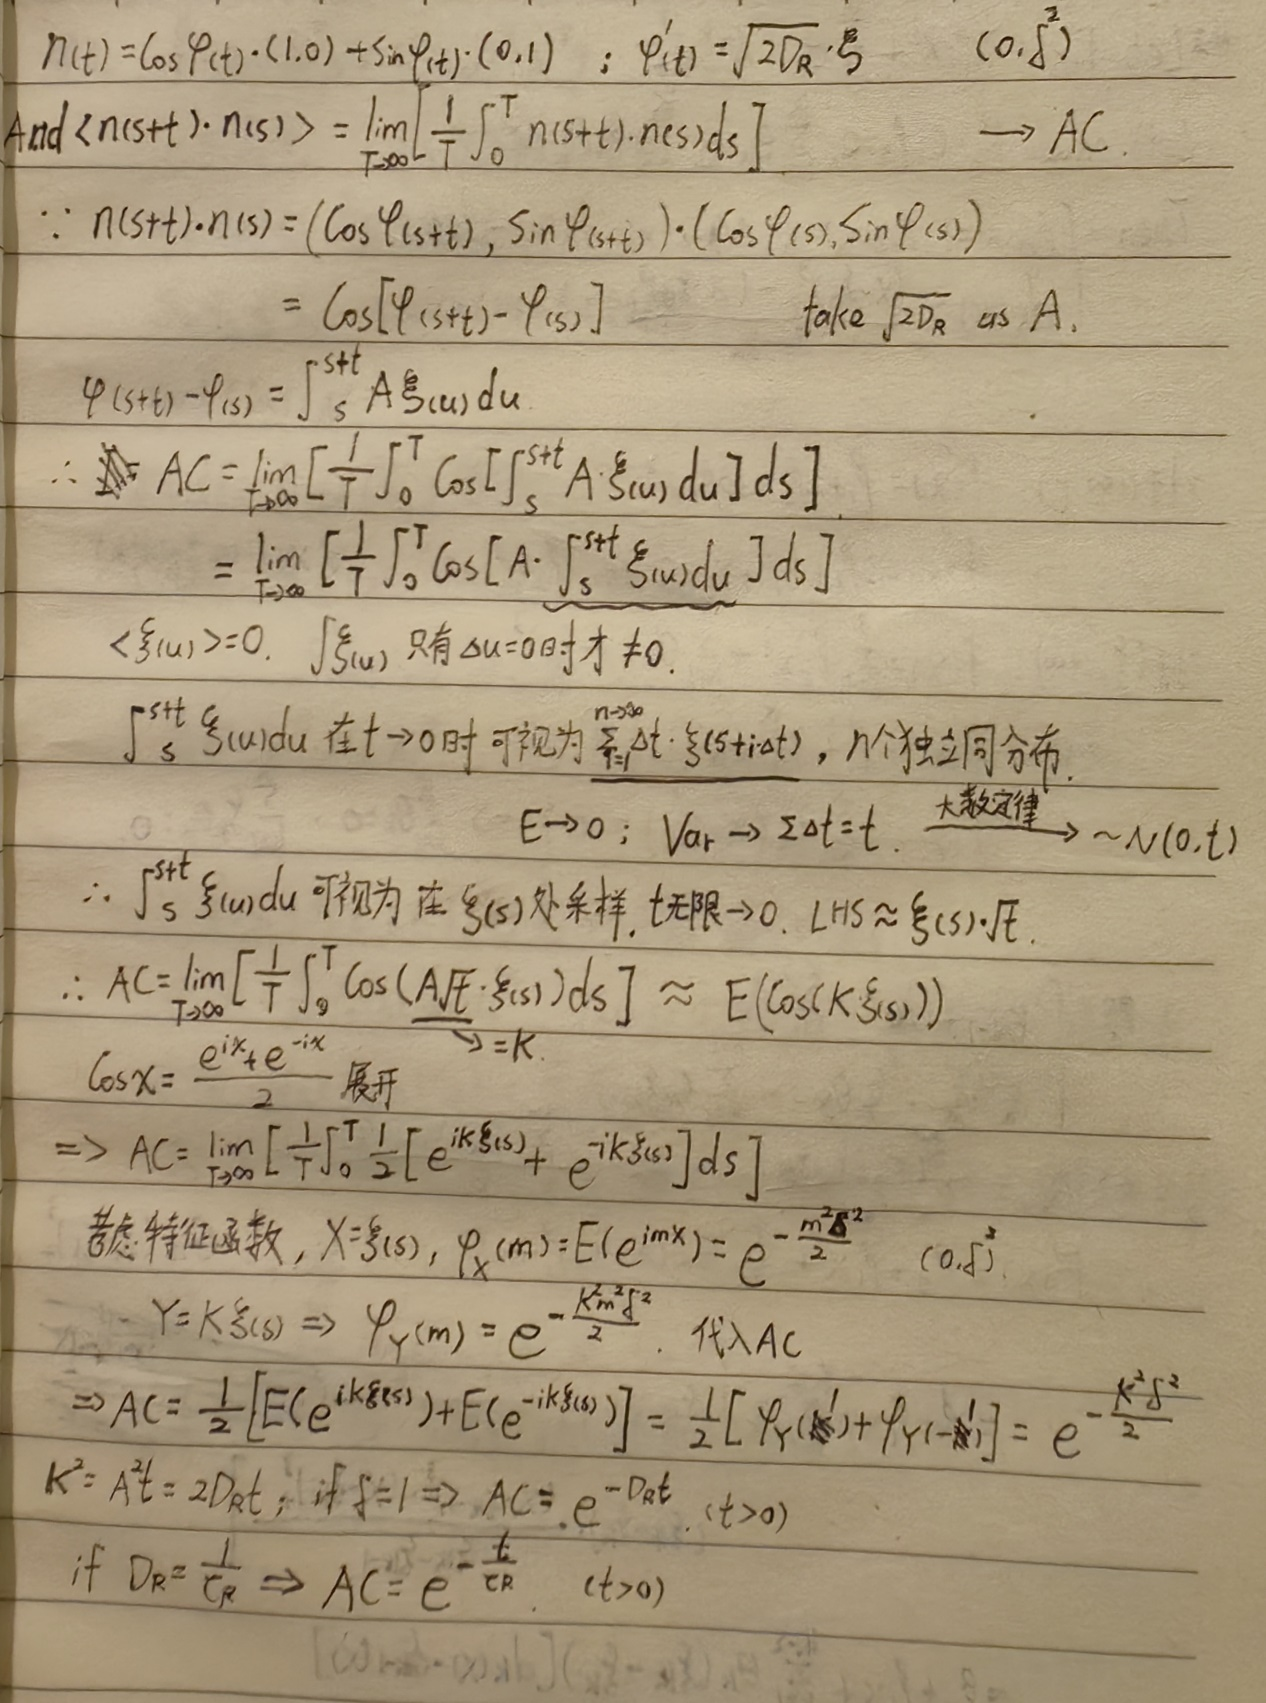 n(t) = Cos φ(t)·(1,0) + Sin φ(t)·(0,1) ; φ'(t) = √(2D_R)·ξ (0,δ²)
And <n(s+t)·n(s)> = lim_{T→∞} [1/T ∫_0^T n(s+t)·n(s)ds] → AC.
∵ n(s+t)·n(s) = (Cos φ(s+t), Sin φ(s+t))·(Cos φ(s), Sin φ(s))
= Cos[φ(s+t) - φ(s)] take √(2D_R) as A.
φ(s+t) - φ(s) = ∫_s^{s+t} A ξ(u) du
∴ AC = lim_{T→∞} [1/T ∫_0^T Cos[∫_s^{s+t} A·ξ(u) du] ds]
= lim_{T→∞} [1/T ∫_0^T Cos[A·∫_s^{s+t} ξ(u)du] ds]
<ξ(u)> = 0. ∫ξ(u) 只有 Δu=0时才 ≠0.
∫_s^{s+t} ξ(u)du 在 t→0时 可视为 Σ_{i=1}^{n→∞} Δt·ξ(s+i·Δt) , n个独立同分布.
E→0 ; Var → ΣΔt = t. 大数定律 → ~N(0,t)
∴ ∫_s^{s+t} ξ(u)du 可视为 在 ξ(s) 处采样. t无限→0. LHS ≈ ξ(s)·√t.
∴ AC = lim_{T→∞} [1/T ∫_0^T Cos(A√t·ξ(s))ds] ≈ E(Cos(K·ξ(s)))
→ = K.
Cos x = (e^{ix} + e^{-ix})/2 展开
=> AC = lim_{T→∞} [1/T ∫_0^T 1/2 [e^{iKξ(s)} + e^{-iKξ(s)}] ds]
考虑特征函数, X=ξ(s), φ_X(m) = E(e^{imX}) = e^{-m²δ²/2} (0,δ²)
Y = Kξ(s) => φ_Y(m) = e^{-K²m²δ²/2}. 代入AC
=> AC = 1/2 [E(e^{iKξ(s)}) + E(e^{-iKξ(s)})] = 1/2 [φ_Y(1) + φ_Y(-1)] = e^{-K²δ²/2}
K² = A²t = 2D_R t ; if δ=1 => AC = e^{-D_R t}. (t>0)
if D_R = 1/τ_R => AC = e^{-t/τ_R}. (t>0)